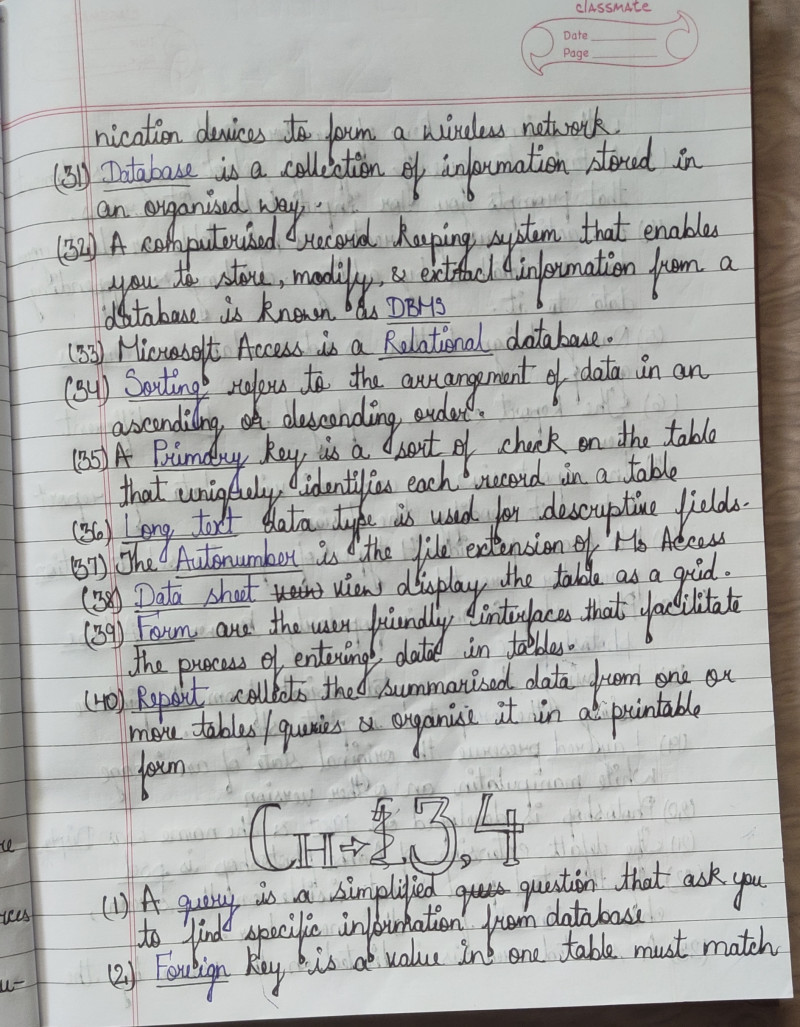 classmate
Date
Page
nication devices to form a wireless network.
(31) Database is a collection of information stored in
an organised way.
(32) A computerised record keeping system that enables
you to store, modify, & extract information from a
database is known as DBMS
(33) Microsoft Access is a Relational database.
(34) Sorting refers to the arrangement of data in an
ascending or descending order.
(35) A Primary key is a sort of check on the table
that uniquely identifies each record in a table
(36) Long text data type is used for descriptive fields.
(37) The Autonumber is the file extension of Ms Access
(38) Data sheet vein view display the table as a grid.
(39) Form are the user friendly interfaces that facilitate
the process of entering data in tables.
(40) Report collects the summarised data from one or
more tables/queries & organise it in a printable
form
CH→ 3,4
(1) A query is a simplified ques question that ask you
to find specific information from database.
(2) Foreign key is a value in one table must match